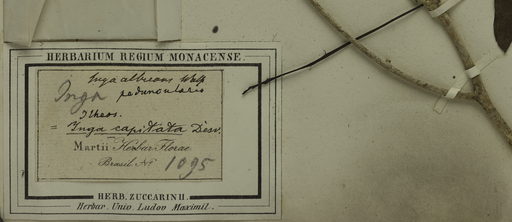 HERBARIUM REGIUM MONACENSE.
Inga albicans Walp
Inga peduncularis
Ilheos.
= Inga capitata Desv.
Martii Herbar. Florae
Brasil. No. 1095
HERB. ZUCCARINII.
Herbar. Univ. Ludov Maximil.